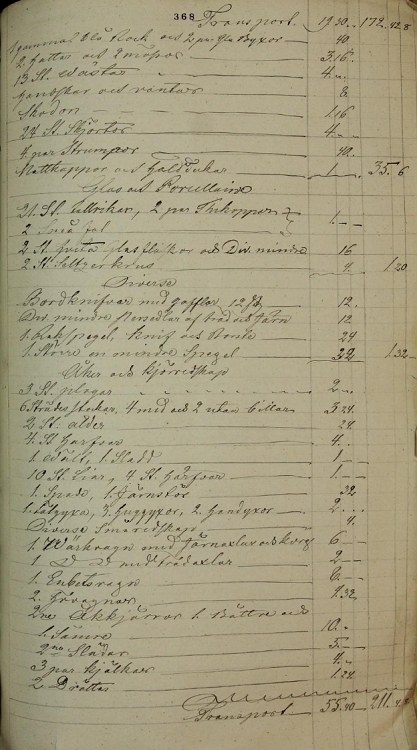 368 Transport 1930 172.42.8
Gammal blå Rock och 2 par Gla Byxor 40
2 Hattar och 2 mössor 3.16
13 St. Västar 4
Handskar och vantar 8
Skodon 1.16
24 St. Skjortor 4
4 par Strumpor 40
Nattkappor och Halsdukar 1 35.6
Glas och Porcellaine
21 St. tallrikar, 2 par Thekoppar
2 små fat 1
2 St. hvita glasflaskor och Div. mindre 16
2 St. Seltzerkrus 4 1.20
Diverse
Bordknifvar med gafflar 12 St 12
Div. mindre Persedlar af träd och Järn 12
1 Rakspegel, knif och 24
1 Större en mindre Spegel 32 1.32
Åker och kjörredskap
3 St. plogar 2
6 stockar, 4 med och 2 utan billar 3 24
2 St. ålder 24
4 St. Harfvar 4
1 Vält, 1 Sladd 1
10 St. Liar, 4 St. Härfvor 1
1 Spade, 1 Järnstör 32
1 Täljyxa, 3 Huggyxor, 2 Handyxor 2
Diverse Småredskap 4
1 Wärkvagn med Järnaxlar och korg 6
1 D D med trädaxlar 2
1 Enbetsvagn 6
2 Hövagnar 4.32
2ne Åkkjärror 1 Bättre och
1 Sämre 10
2ne Slädar 5
3 par kjälkar 4
2 Drättar 1.24
Transport 55.40 211.4.8